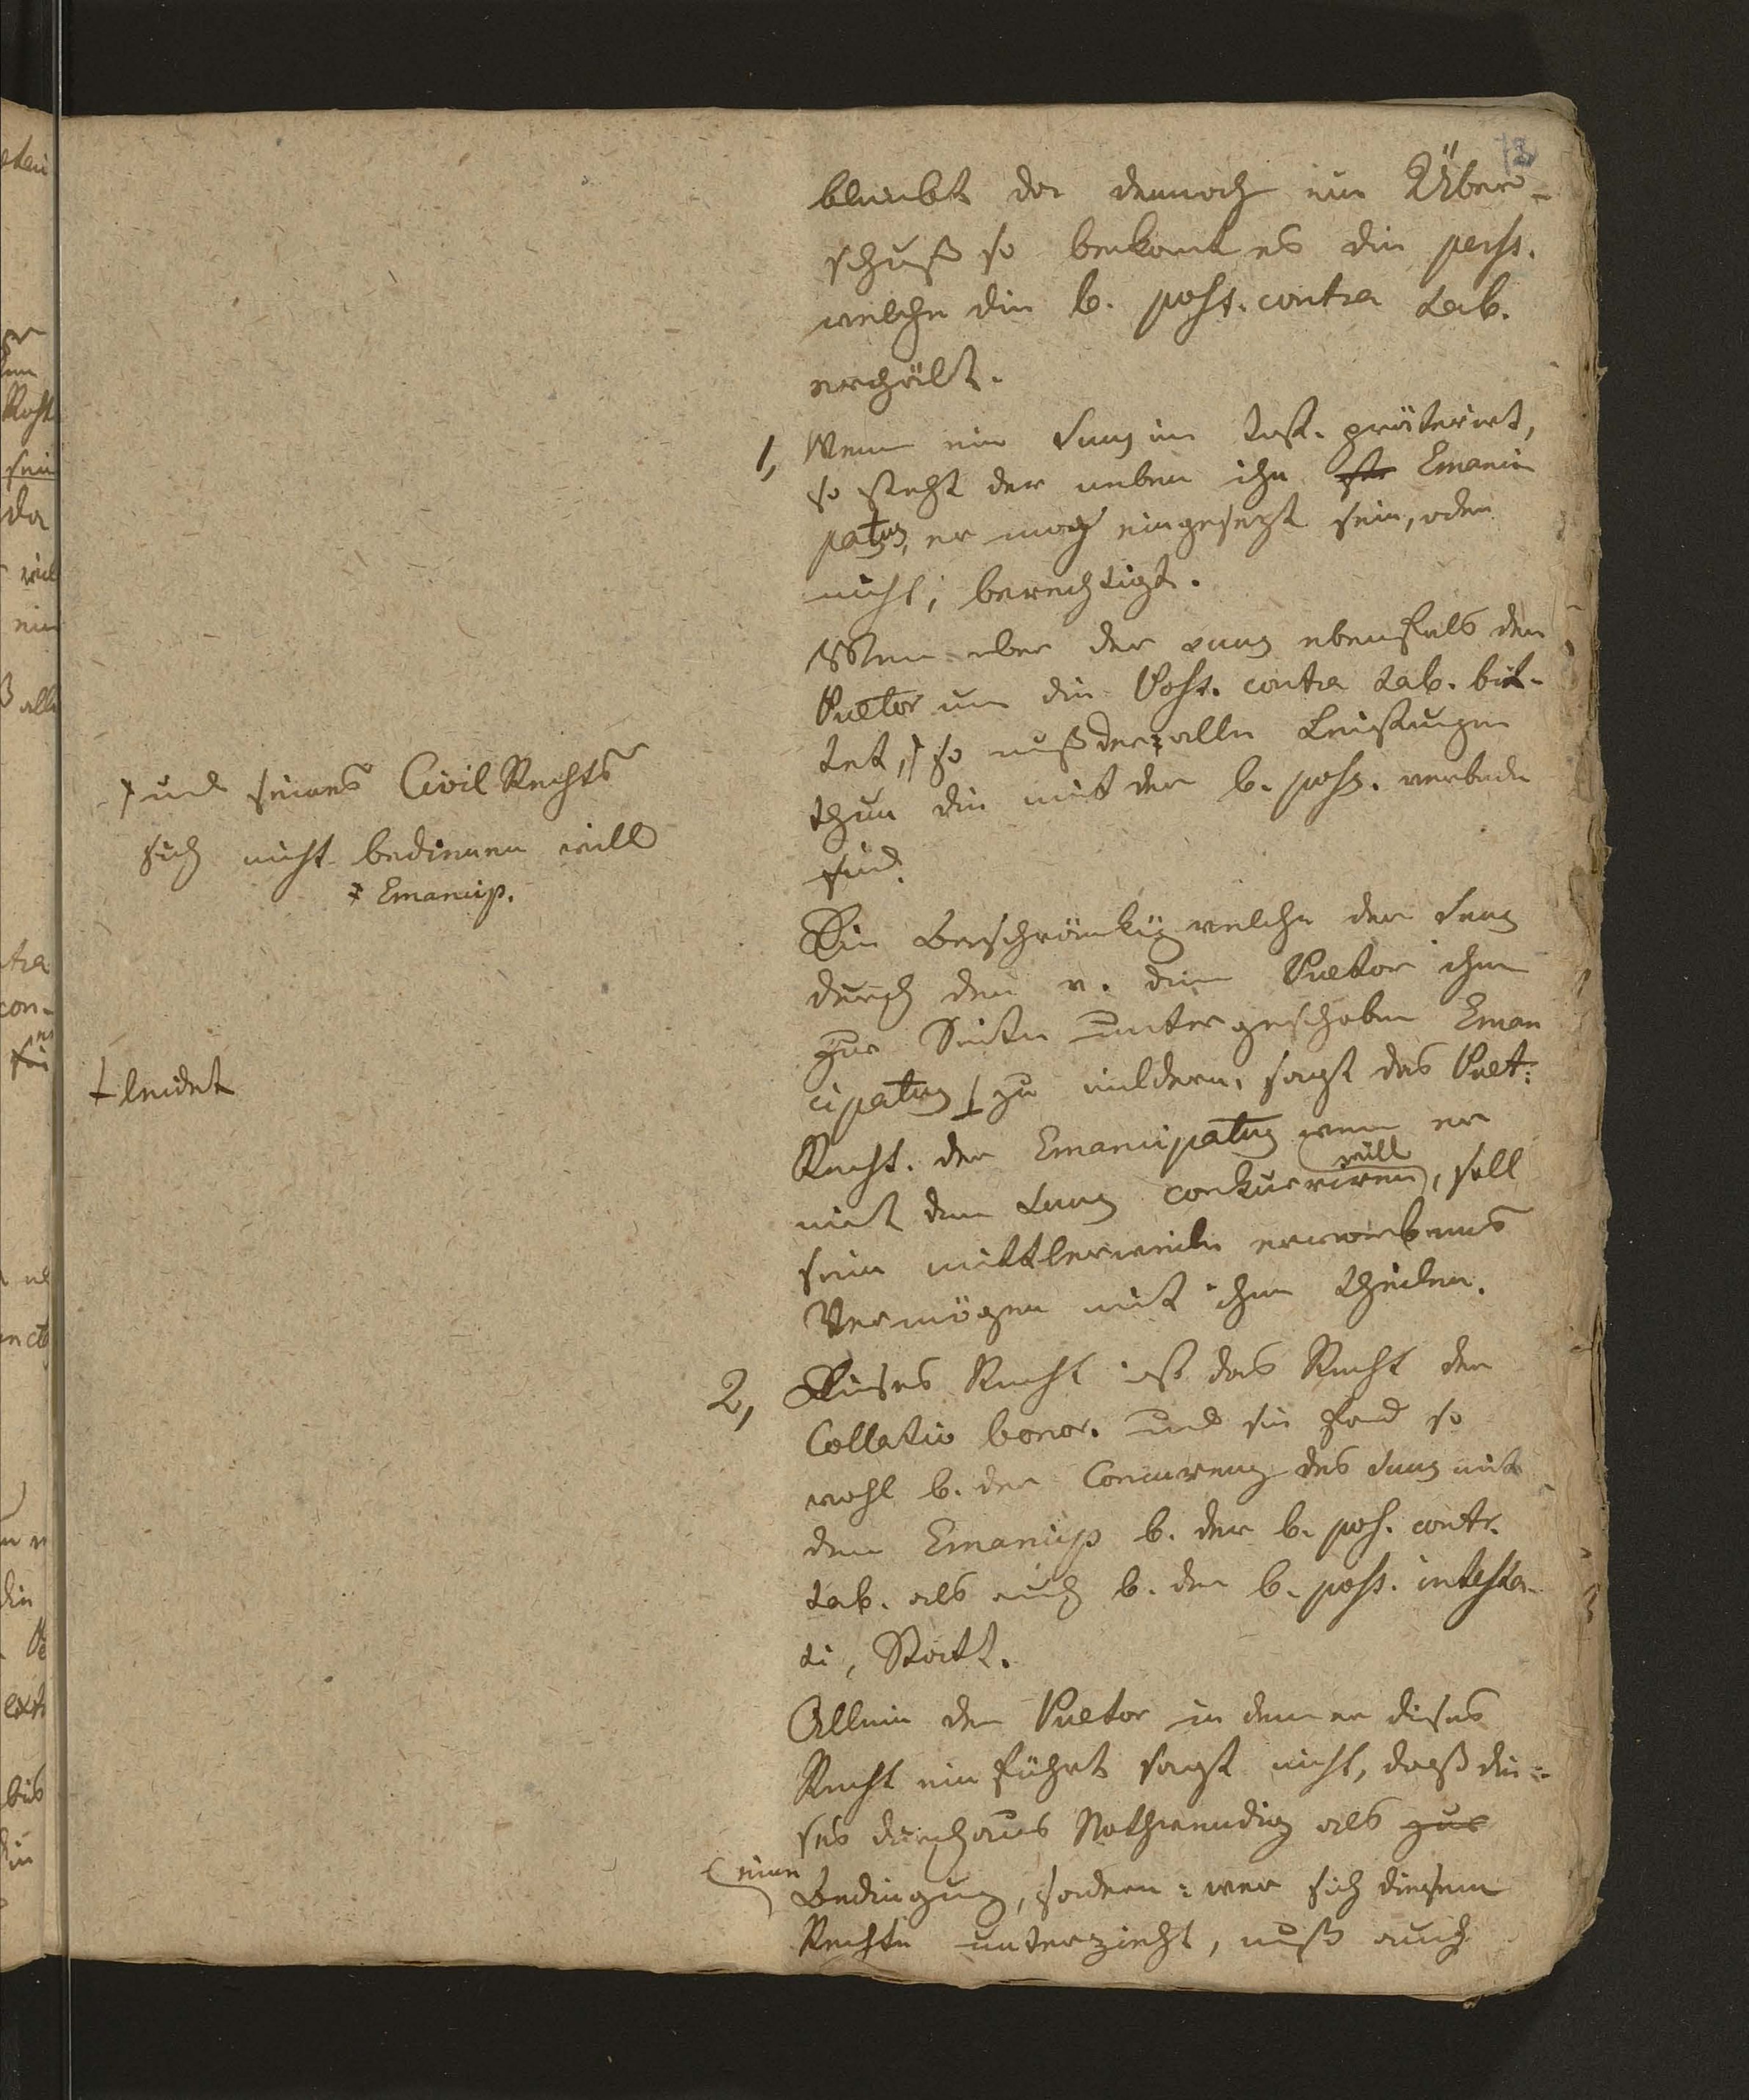 bleibt da dennoch ein Über-
schuß so bekomt es die perss.
welche die b. poss. contra tab.
erhält.
1, Wenn ein Suus im test. präterirt,
so steht der neben ihn Emanci
patus, er mag eingesezt sein, oder
nicht, berechtigt.
Wenn aber der suus ebenfals den
Praetor um die Poss. contra tab. bit-
tet, so muß der alle Leistungen
thun die mit der b. poss. verbunden
sind.
und seines Civil Rechts
sich nicht bedienen will
Emancip.
Die Beschränkung welche der Suus
durch den v. dem Praetor ihm
zur Seite untergeschoben Eman
cipatus zu mildern, sagt das Praet:
leidet
Recht. der Emancipatus wenn er
mit dem Suus conkurriren will, soll
sein mittlerweile erworbenes
Vermögen mit ihm theilen.
2, Dieses Recht ist das Recht der
Collatio bonor. und sie fand so
wohl b. der Concurenz des Suus mit
dem Emancip b. der b. pos. contr.
tab. als auch b. der b. poss. intesta-
ti, Statt.
Allein der Praetor in dem er dieses
Recht ein führt sagt nicht, daß die-
ses durchaus Nothwendig als zur
eine
Bedingung, sondern: wer sich diesem
Rechte unterzieht, muß auch